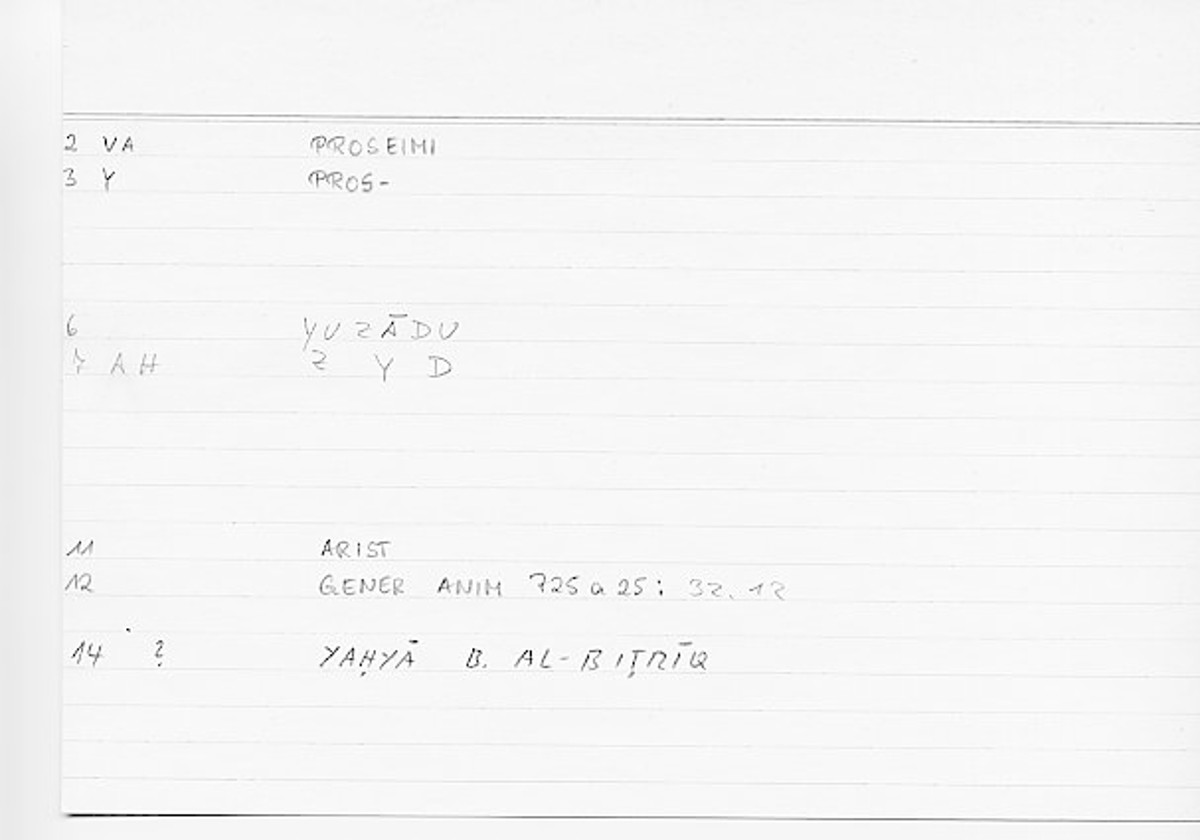 2 VA PROSEIMI
3 Y PROS-
6 YUZĀDU
7 AH Z Y D
11 ARIST
12 GENER ANIM 725a25: 32.12
14 ? YAḤYĀ B. AL-BIṬRĪQ